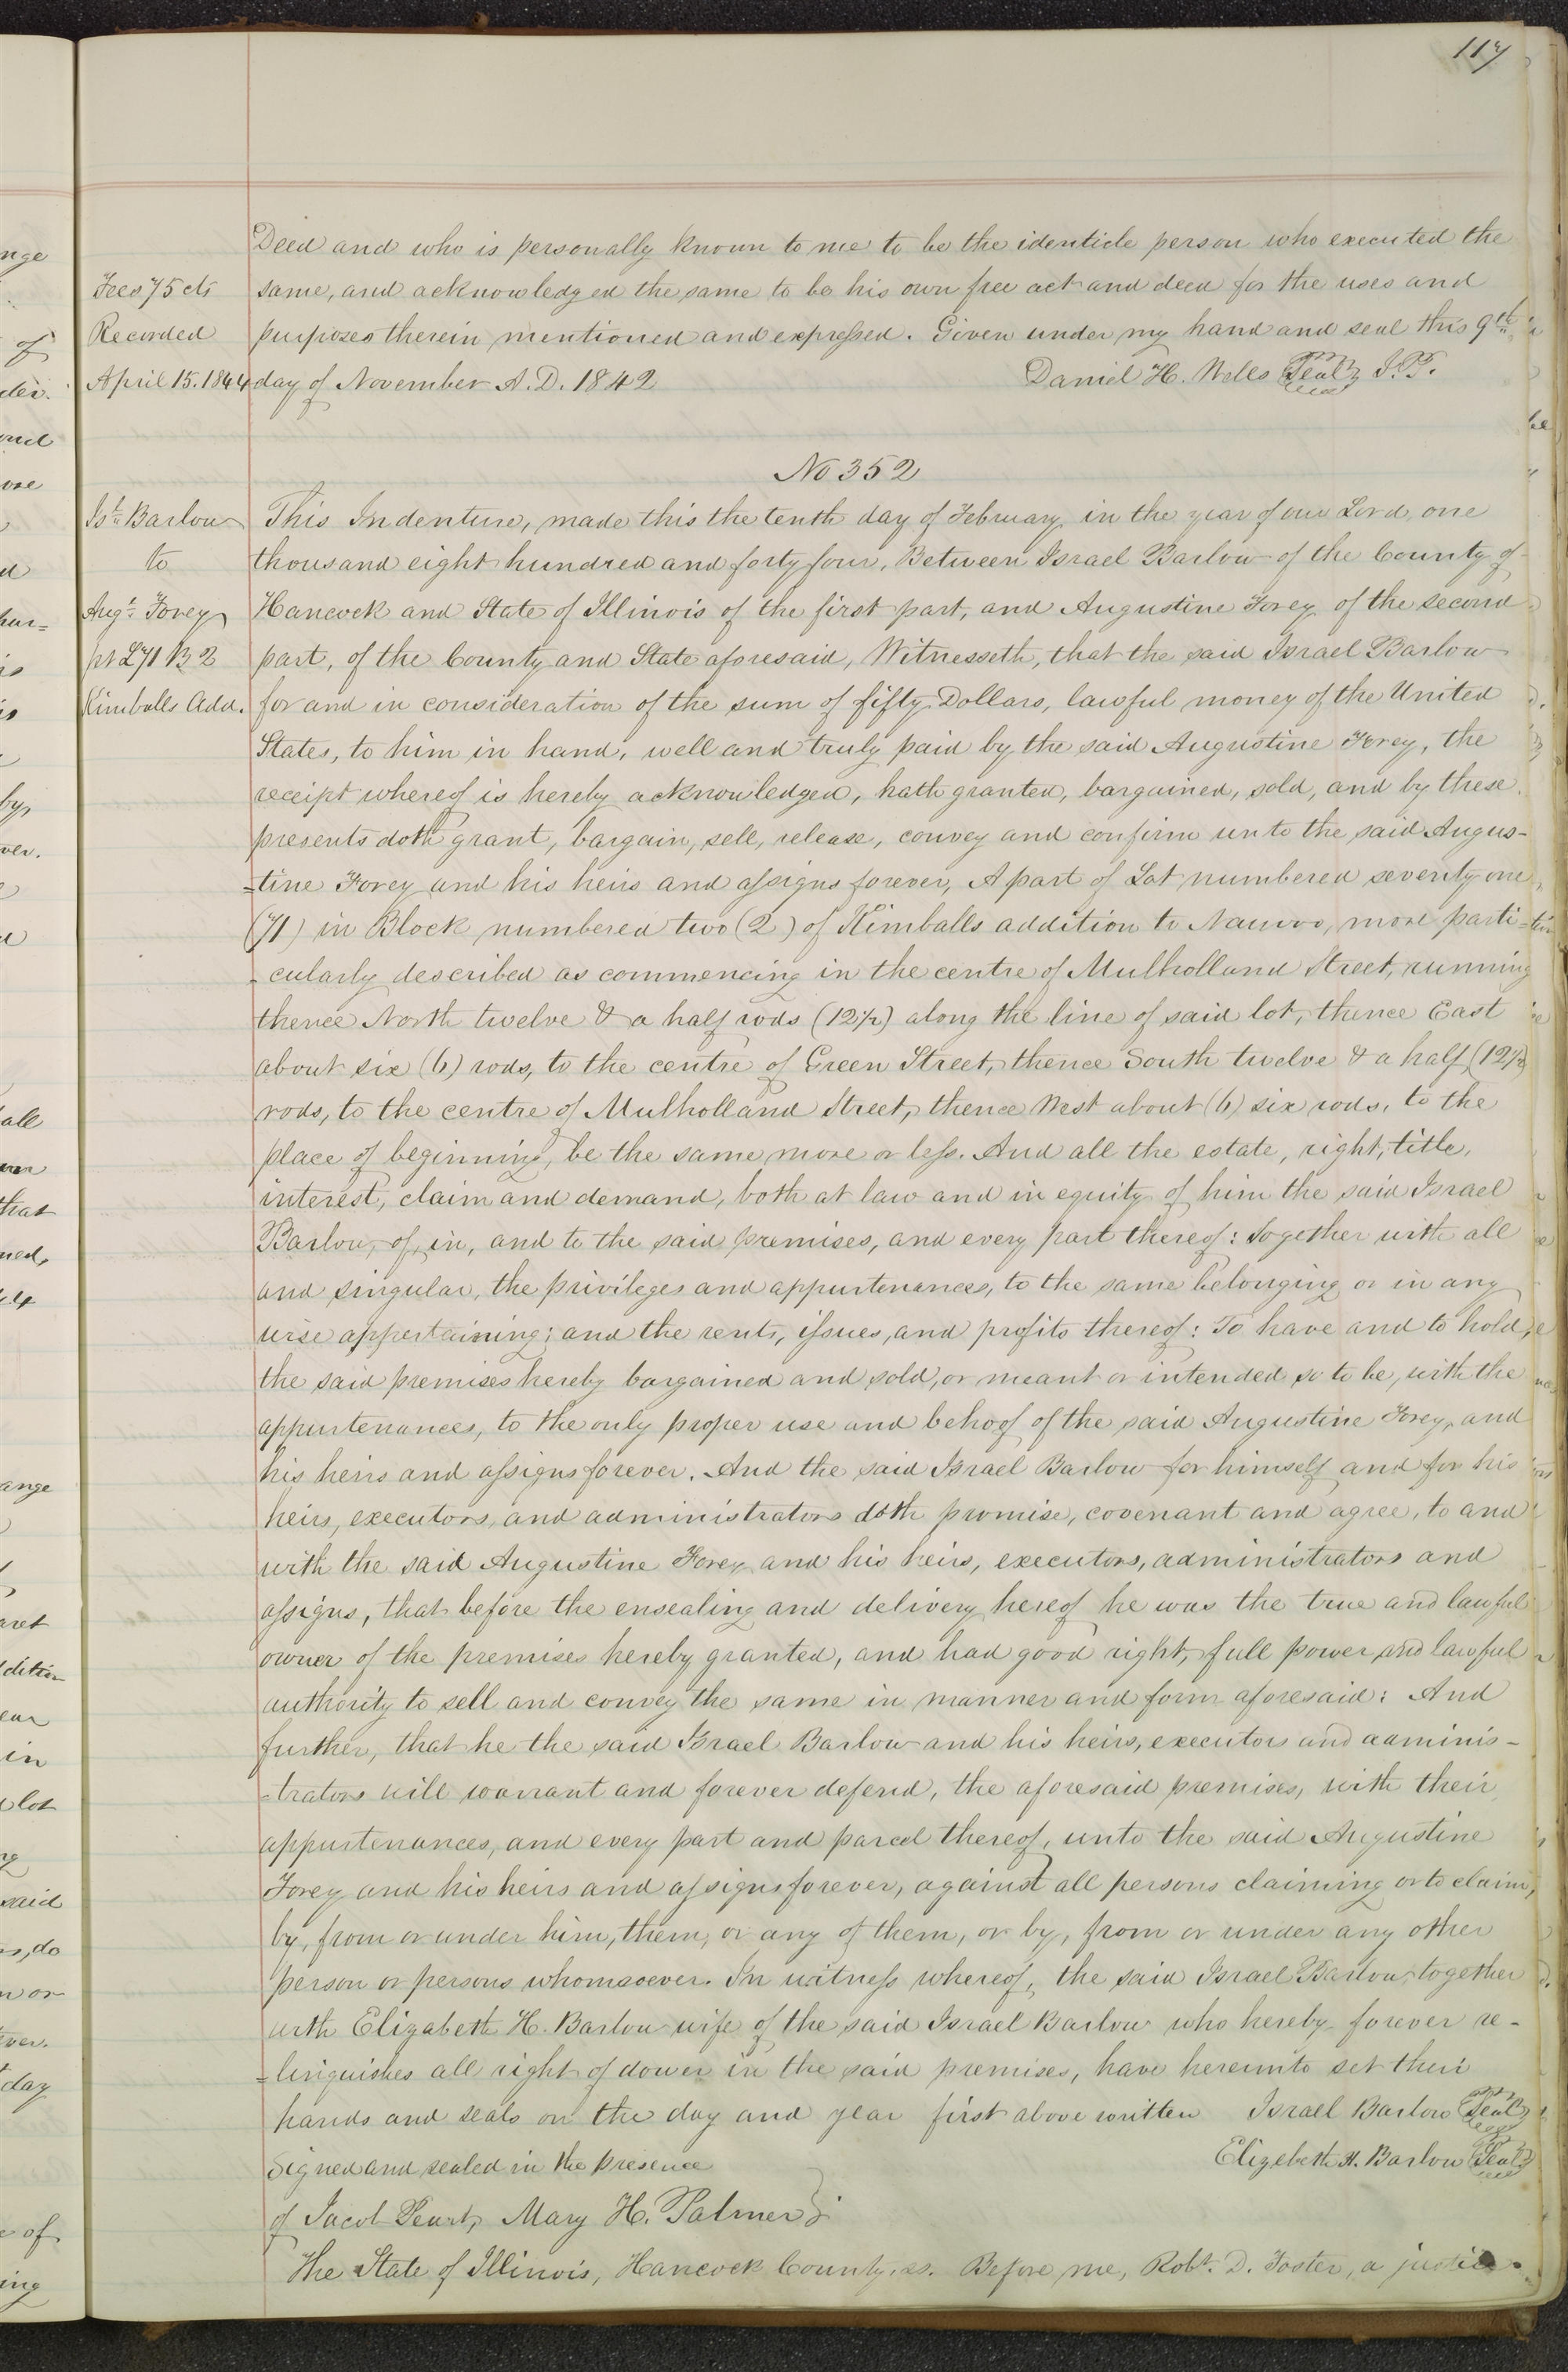 117
Deed and who is personally known to me to be the identicle person who executed the
Fees 75 cts same, and acknowledged the same to be his own free act and deed for the uses and
Recorded purposes therein mentioned and expressed. Given under my hand and seal this 9th
April 15. 1844 day of November A.D. 1842 Daniel H. Wells Seal J.P.
No 352
Isl. Barlow This Indenture, made this the tenth day of February in the year of our Lord, one
to thousand eight hundred and forty four, Between Israel Barlow of the County of
Augt. Forey Hancock and State of Illinois of the first part, and Augustine Forey of the second
pt L 71 B 2 part, of the County and State aforesaid, Witnesseth, that the said Israel Barlow
Kimballs Add. for and in consideration of the sum of fifty Dollars, lawful money of the United
States, to him in hand, well and truly paid by the said Augustine Forey, the
receipt whereof is hereby acknowledged, hath granted, bargained, sold, and by these
presents doth grant, bargain, sell, release, convey and confirm unto the said Augus-
=tine Forey and his heirs and assigns forever, A part of Lot numbered seventy one
(71) in Block numbered two (2) of Kimballs addition to Nauvoo, more parti-
-cularly described as commencing in the centre of Mulholland Street, running
thence North twelve & a half rods (12½) along the line of said lot, thence East
about six (6) rods, to the centre of Green Street, thence South twelve & a half (12½)
rods, to the centre of Mulholland Street, thence West about (6) six rods, to the
place of beginning, be the same more or less. And all the estate, right, title,
interest, claim and demand, both at law and in equity of him the said Israel
Barlow, of, in, and to the said premises, and every part thereof: Together with all
and singular, the privileges and appurtenances, to the same belonging or in any
wise appertaining; and the rents, issues, and profits thereof: To have and to hold,
the said premises hereby bargained and sold, or meant or intended so to be, with the
appurtenances, to the only proper use and behoof of the said Augustine Forey, and
his heirs and assigns forever. And the said Israel Barlow for himself and for his
heirs, executors, and administrators doth promise, covenant and agree, to and
with the said Augustine Forey and his heirs, executors, administrators and
assigns, that before the ensealing and delivery hereof he was the true and lawful
owner of the premises hereby granted, and had good right, full power and lawful
authority to sell and convey the same in manner and form aforesaid: And
further, that he the said Israel Barlow and his heirs, executors and adminis-
=trators will warrant and forever defend, the aforesaid premises, with their
appurtenances, and every part and parcel thereof, unto the said Augustine
Forey and his heirs and assigns forever, against all persons claiming or to claim,
by, from or under him, them, or any of them, or by, from or under any other
person or persons whomsoever. In witness whereof, the said Israel Barlow, together
with Elizabeth H. Barlow wife of the said Israel Barlow who hereby forever re-
=linquishes all right of dower in the said premises, have hereunto set their
hands and seals on the day and year first above written Israel Barlow Seal
Signed and sealed in the presence Elizebeth H. Barlow Seal
of Jacob Peart, Mary H. Palmer
The State of Illinois, Hancock County, ss. Before me, Robt. D. Foster, a justice